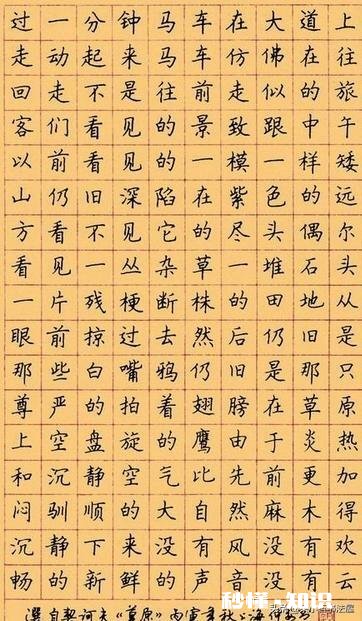 过一分钟马车在大道上
走动起来马车仿佛在往
回走不是往前走似的旅
客们看见的景致跟中午
以前看见的一模一样矮
山仍旧深陷在紫色的远
方看不见它的尽头偶尔
看见一丛杂草一堆石头
一片残梗断株的田地从
眼前掠过去然后仍旧是
那些白嘴鸦仍旧是那只
尊严的拍着翅膀在草原
上空盘旋的鹰由于炎热
和沉静空气比先前更加
闷驯顺的大自然麻木得
沉静下来没有风没有欢
畅的新鲜的声音没有云
选自契诃夫《草原》丙寅年秋上海
秒懂·知识